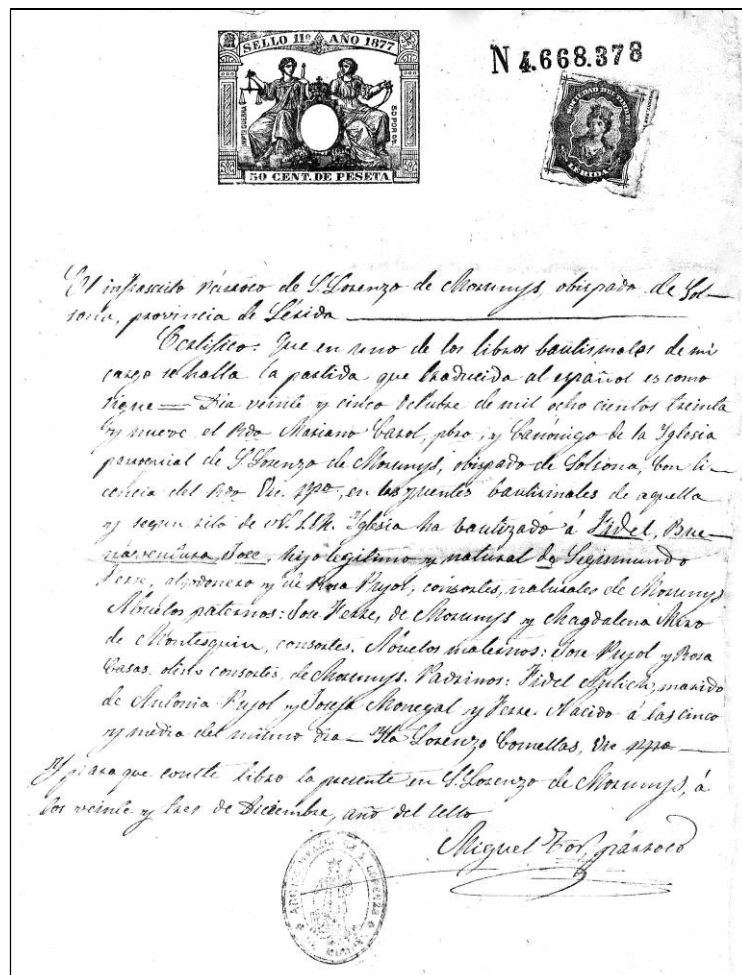 SELLO 11º AÑO 1877
IMPTO GUERRA
50 POR CP.
50 CENT. DE PESETA
N 4.668.378
SOCIEDAD DEL TIMBRE
LERIDA
El infrascrito Párroco de S. Lorenzo de Morunys, obispado de Sol-
sona, provincia de Lérida
Certifico: Que en uno de los libros bautismales de mi
cargo se halla la partida que traducida al español es como
sigue = Dia veinte y cinco Octubre de mil ocho cientos treinta
y nueve el Rdo Mariano Carol, pbro, y Canónigo de la Iglesia
parroquial de S. Lorenzo de Morunys, obispado de Solsona, con li-
cencia del Rdo Vic. ppo, en las fuentes bautismales de aquella
y segun rito de Iglesia ha bautizado á Fidel, Bue-
naventura José, hijo legitimo y natural de Segismundo
Ferre, algodonero y de Rosa Pujol, consortes, naturales de Morunys
Abuelos paternos: Jose Ferre, de Morunys y Magdalena Miro
de Montesquiu, consortes. Abuelos maternos: Jose Pujol y Rosa
Casas, consortes, de Morunys. Padrinos: Fidel marido
de Antonia Pujol y Josefa Monegal y Ferre. Nacido á las cinco
y media del mismo dia — Lorenzo Comellas, Vic ppo
Y para que conste libro la presente en S. Lorenzo de Morunys, á
los veinte y tres de Diciembre, año del sello
Miguel Tor, párroco